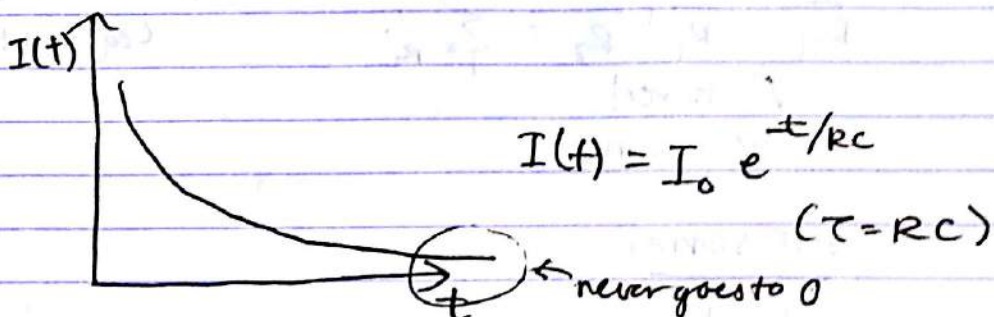 I(t)
I(t) = I₀ e^-t/RC
(τ = RC)
← never goes to 0
t